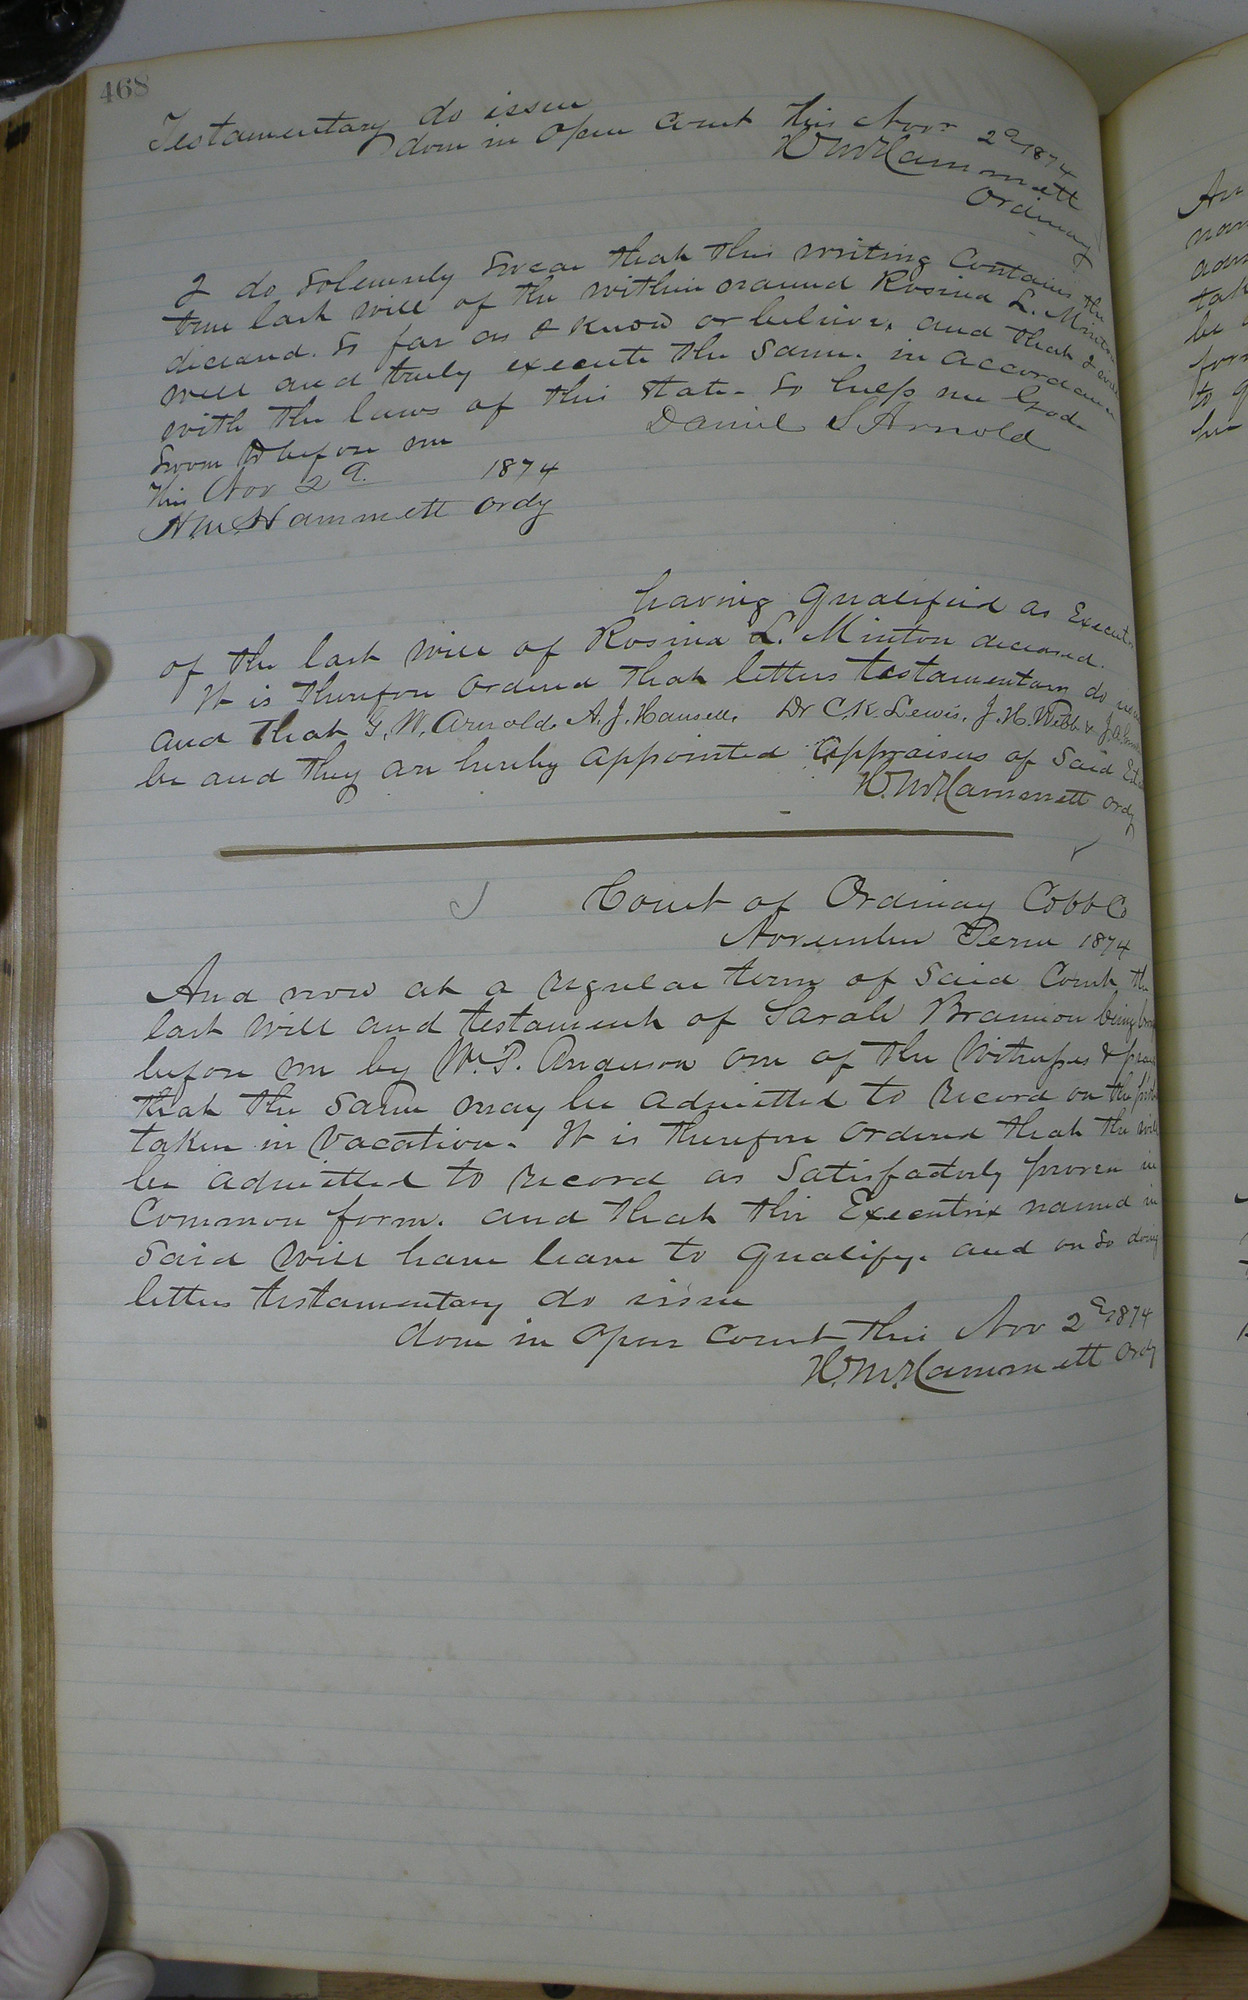 468
Testamentary do issue
done in open Court this Novr 2d 1874
W M Hammett
Ordinary
I do solemnly swear that this writing contains the
true last will of the within named Rosina L. Minton
deceased. so far as I know or believe, and that I will
well and truly execute the same. in accordance
with the laws of this State. So help me God.
Sworn to before me Daniel S Arnold
this Nov 2d. 1874
W.M. Hammett ordy
having qualified as Execut
of the last will of Rosina L. Minton deceased.
It is therefore ordered that letters testamentary do
and that G. W. Arnold, A. J. Hansell, Dr C. K. Lewis, J. H. Webb & J. A.
be and they are hereby appointed appraisers of said
W. M Hammett ordy
Court of Ordinary Cobb Co
November Term 1874
And now at a regular term of said Court the
last will and testament of Sarah Brannon being
before me by W. P. Anderson one of the Witnesses &
that the same may be admitted to record on the
taken in vacation. It is therefore ordered that the will
be admitted to record as satisfactorly proven in
Common form. and that the Executrix named in
said will have leave to qualify. and on so doing
letters testamentary do issue
done in open Court this Nov 2d 1874
W. M. Hammett Ordy